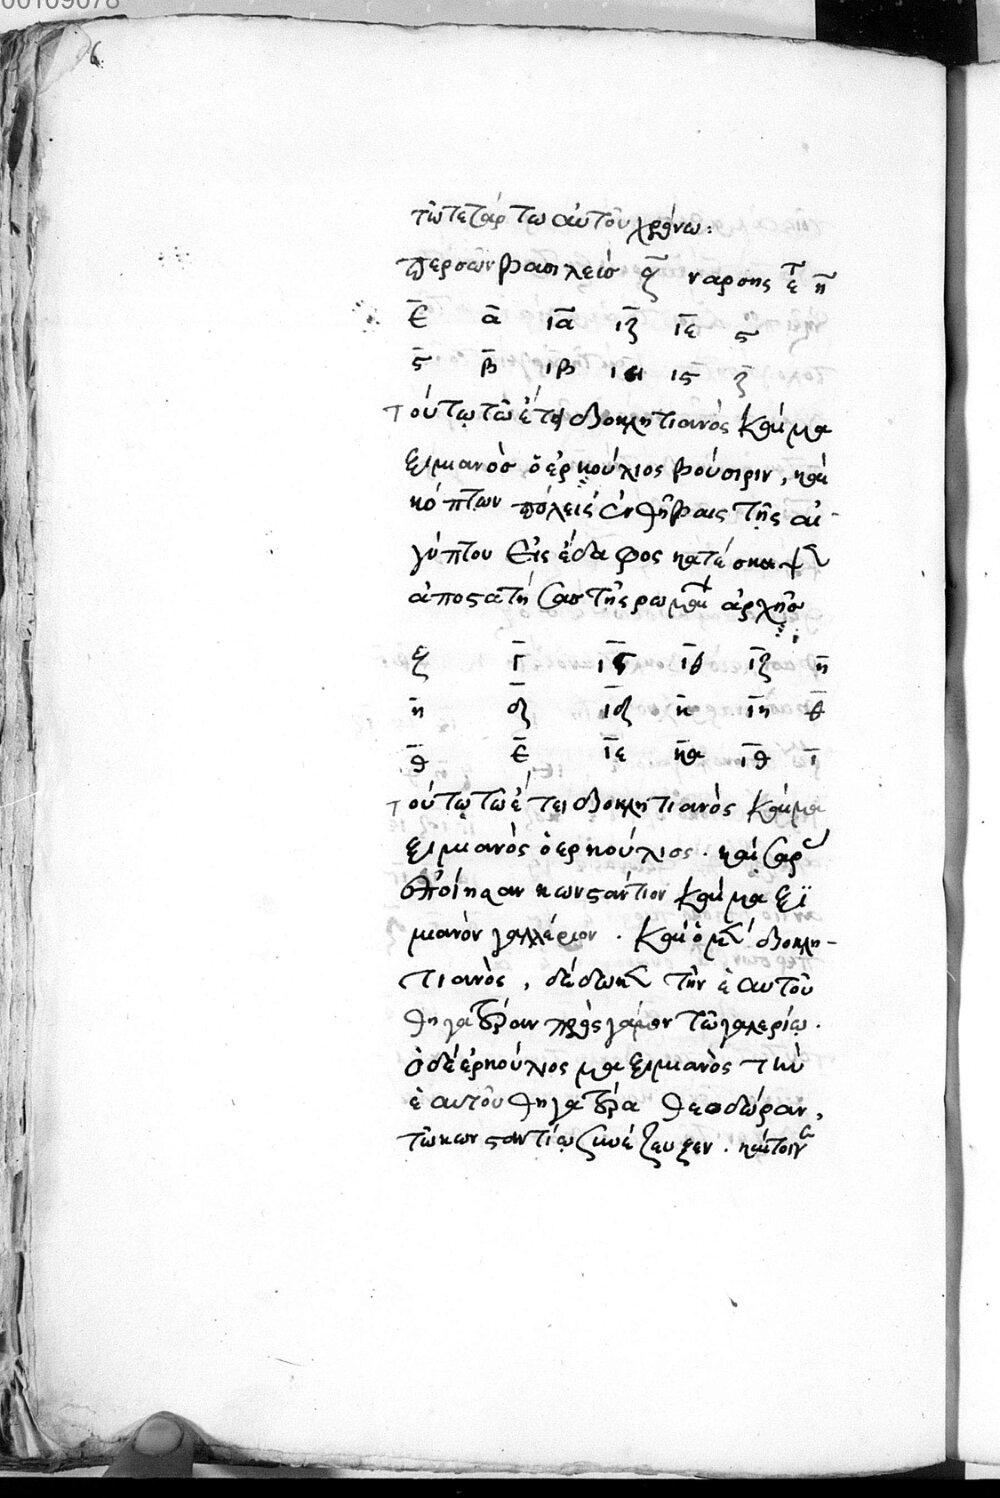 00109078
τῶ τετάρτω αὐτοῦ χρόνω:
περσῶν βασιλεὺς ζ̄ ναρσης ἔ̄τ η̄
ε̄ ᾱ ῑᾱ ιζ̄ ῑε ς
ς̄ β̄ ιβ ιη ις ζ̄
τούτῳ τῶ ἔτει διοκλητιανὸς καὶ μα
ξιμιανὸς ὁ ἑρκούλιος βούσιριν, καὶ
κόπτων πόλεις ἐν θήβαις τῆς αἰ-
γύπτου εἰς ἔδαφος κατέσκαψαν
ἀποστατήσας τῆς ρωμαικ ἀρχῆς
ζ γ̄ ῑς ῑθ ῑζ η̄
η̄ δ̄ ῑδ κ̄ ῑη θ̄
θ̄ ε̄ ῑε κ̄α ῑθ ῑ
τούτῳ τῶ ἔτει διοκλητιανὸς καὶ μα
ξιμιανὸς ὁ ερκούλιος. καίσαρ
ἐποίησαν κωνσάντιον καὶ μαξϊ
μιανὸν γαλλέριον. καὶ ὁ μὲν διοκλη-
τιανὸς, δέδωκεν τὴν ἑαυτοῦ
θηγατέραν πρὸς γάμον τῶ γαλερίῳ.
ὁ δὲ ἑρκούλιος μαξιμιανὸς τὴν
ἑαυτοῦ θηγατέρα θεοδώραν,
τῶ κωνσαντίῳ συνέζευξεν. καίτοιγ